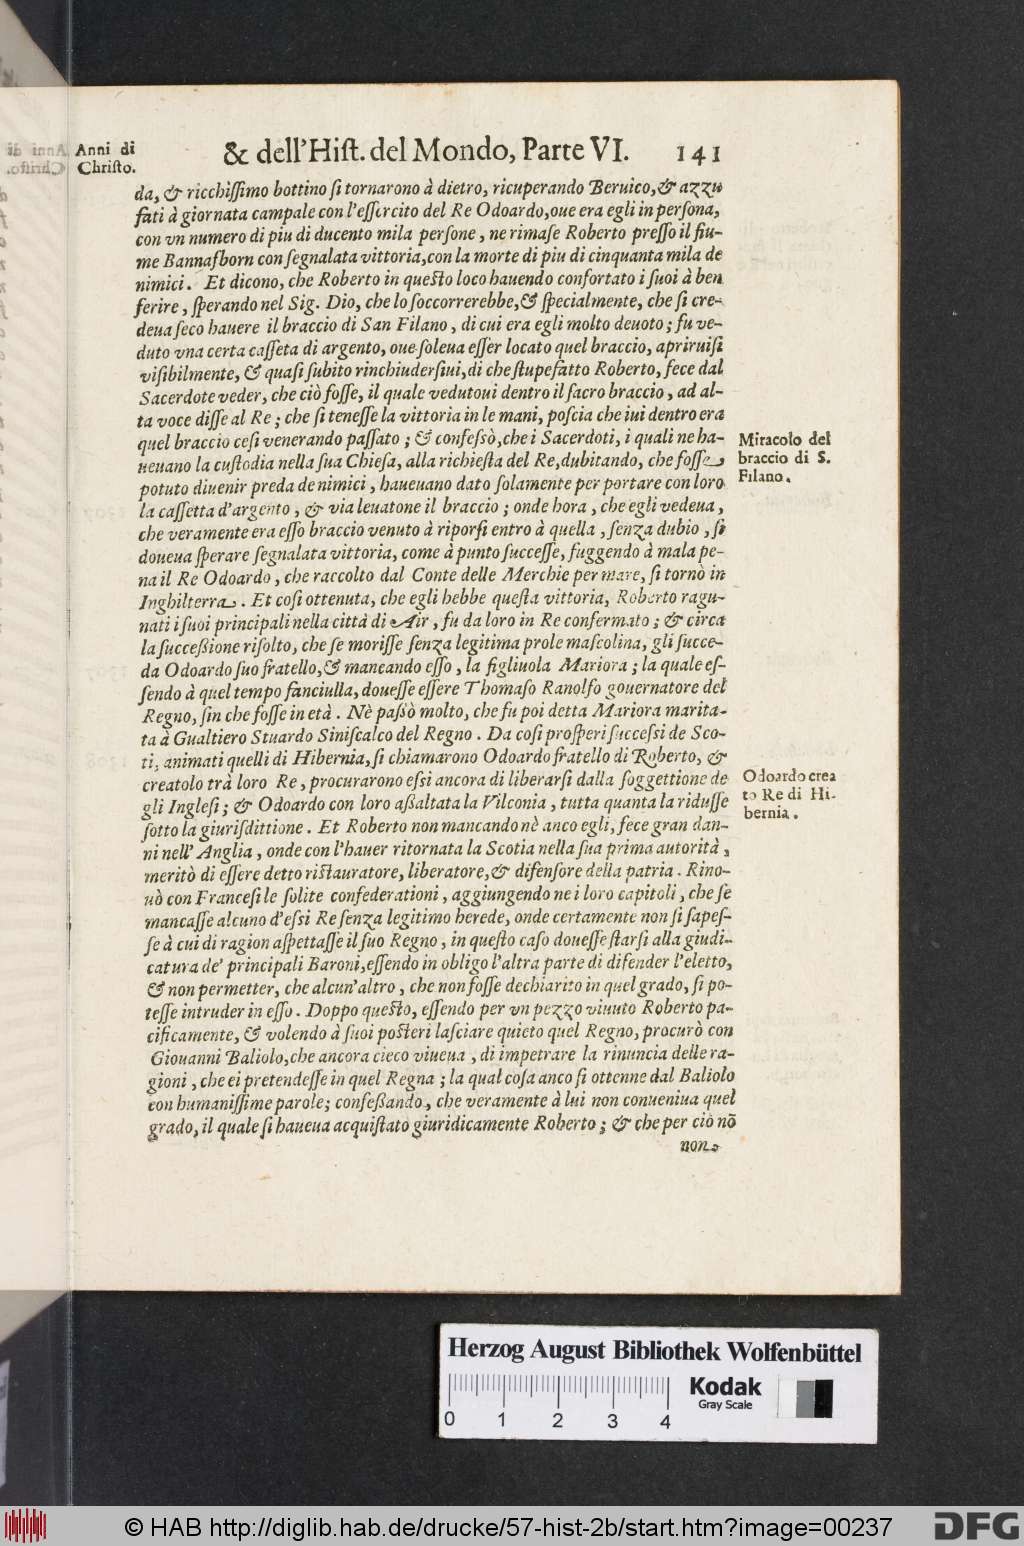 Anni di
Christo.
& dell'Hist. del Mondo, Parte VI. 141
da, & ricchissimo bottino si tornarono à dietro, ricuperando Beruico, & azzu
fati à giornata campale con l'essercito del Re Odoardo, oue era egli in persona,
con vn numero di piu di ducento mila persone, ne rimase Roberto presso il fiu-
me Bannasborn con segnalata vittoria, con la morte di piu di cinquanta mila de
nimici. Et dicono, che Roberto in questo loco hauendo confortato i suoi à ben
ferire, sperando nel Sig. Dio, che lo soccorrerebbe, & specialmente, che si cre-
deua seco hauere il braccio di San Filano, di cui era egli molto deuoto; fu ve-
duto vna certa casseta di argento, oue soleua esser locato quel braccio, apriruisi
visibilmente, & quasi subito rinchiudersiui, di che stupefatto Roberto, fece dal
Sacerdote veder, che ciò fosse, il quale vedutoui dentro il sacro braccio, ad al-
ta voce disse al Re; che si tenesse la vittoria in le mani, poscia che iui dentro era
quel braccio cesi venerando passato; & confessò, che i Sacerdoti, i quali ne ha-
ueuano la custodia nella sua Chiesa, alla richiesta del Re, dubitando, che fosse
potuto diuenir preda de nimici, haueuano dato solamente per portare con loro
la cassetta d'argento, & via leuatone il braccio; onde hora, che egli vedeua,
che veramente era esso braccio venuto à riporsi entro à quella, senza dubio, si
doueua sperare segnalata vittoria, come à punto successe, fuggendo à mala pe-
na il Re Odoardo, che raccolto dal Conte delle Merchie per mare, si tornò in
Inghilterra. Et cosi ottenuta, che egli hebbe questa vittoria, Roberto ragu-
nati i suoi principali nella città di Air, fu da loro in Re confermato; & circa
la successione risolto, che se morisse senza legitima prole mascolina, gli succe-
da Odoardo suo fratello, & mancando esso, la figliuola Mariora; la quale es-
sendo à quel tempo fanciulla, douesse essere Thomaso Ranolfo gouernatore del
Regno, sin che fosse in età. Nè passò molto, che fu poi detta Mariora marita-
ta à Gualtiero Stuardo Siniscalco del Regno. Da cosi prosperi successi de Sco-
ti, animati quelli di Hibernia, si chiamarono Odoardo fratello di Roberto, &
creatolo trà loro Re, procurarono essi ancora di liberarsi dalla soggettione de
gli Inglesi; & Odoardo con loro assaltata la Vilconia, tutta quanta la ridusse
sotto la giurisdittione. Et Roberto non mancando nè anco egli, fece gran dan-
ni nell' Anglia, onde con l'hauer ritornata la Scotia nella sua prima autorità,
meritò di essere detto ristauratore, liberatore, & difensore della patria. Rino-
uò con Francesi le solite confederationi, aggiungendo ne i loro capitoli, che se
mancasse alcuno d'essi Re senza legitimo herede, onde certamente non si sapes-
se à cui di ragion aspettasse il suo Regno, in questo caso douesse starsi alla giudi-
catura de' principali Baroni, essendo in obligo l'altra parte di difender l'eletto,
& non permetter, che alcun' altro, che non fosse dechiarito in quel grado, si po-
tesse intruder in esso. Doppo questo, essendo per vn pezzo viuuto Roberto pa-
cificamente, & volendo à suoi posteri lasciare quieto quel Regno, procurò con
Giouanni Baliolo, che ancora cieco viueua, di impetrare la rinuncia delle ra-
gioni, che ei pretendesse in quel Regna; la qual cosa anco si ottenne dal Baliolo
con humanissime parole; confessando, che veramente à lui non conueniua quel
grado, il quale si haueua acquistato giuridicamente Roberto; & che per ciò nõ
non
Miracolo del
braccio di S.
Filano.
Odoardo crea
to Re di Hi-
bernia.
Herzog August Bibliothek Wolfenbüttel
Kodak
Gray Scale
0 1 2 3 4
© HAB http://diglib.hab.de/drucke/57-hist-2b/start.htm?image=00237
DFG